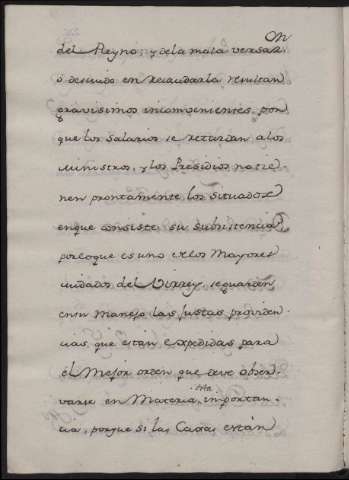 On
del Reyno, y dela mala versar
o descuido en recaudarla resultan
gravisimos inconvenientes, por
que los Salarios se retardan alos
Ministros, y los Presidios no tie-
nen prontamente los situados
enque consiste su subsistencia,
porloque es uno delos Mayores
cuidados del Virrey, seguarden
ensu Manejo las Justas providen-
cias, que están Expedidas para
el Mejor orden que deve obser-
varse en Materia importan-
tta
cia, porque si las Caxas están